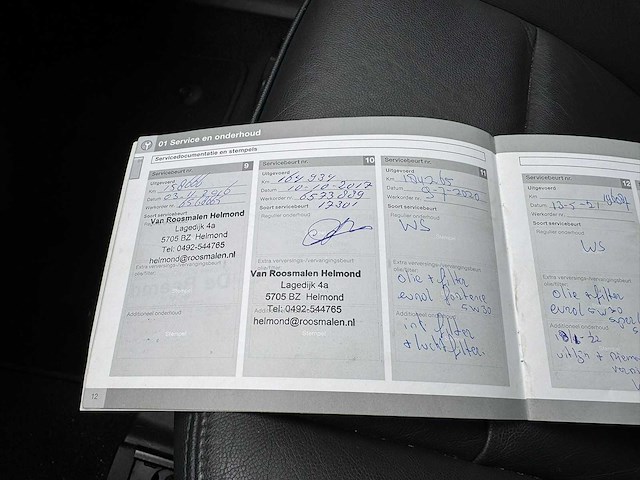 01 Service en onderhoud
Servicedocumentatie en stempels
Servicebeurt nr. 9
Uitgevoerd
Km
Datum
Werkorder nr.
Soort servicebeurt
Van Roosmalen Helmond
Lagedijk 4a
5705 BZ Helmond
Tel: 0492-544765
helmond@roosmalen.nl
Extra verversings-/vervangingsbeurt
olie/filter
Additioneel onderhoud
Servicebeurt nr. 10
Uitgevoerd
Km 164 934
Datum 10-10-2017
Werkorder nr. 6573809
Soort servicebeurt 12301
Regulier onderhoud
Extra verversings-/vervangingsbeurt
Van Roosmalen Helmond
Lagedijk 4a
5705 BZ Helmond
Tel: 0492-544765
helmond@roosmalen.nl
Servicebeurt nr. 11
Uitgevoerd
Km
Datum 9-7-2020
Werkorder nr.
Soort servicebeurt
Regulier onderhoud
WS
Extra verversings-/vervangingsbeurt
olie/filter
olie + filter
eurol fortence
5W30
Additioneel onderhoud
int filter
+ luchtfilter.
Servicebeurt nr. 12
Uitgevoerd
Km
Datum 13-5-21
Werkorder nr.
Soort servicebeurt
Regulier onderhoud
WS
Extra verversings-/vervangingsbeurt
olie/filter
olie + filter
eurol 5W30
Additioneel onderhoud
12